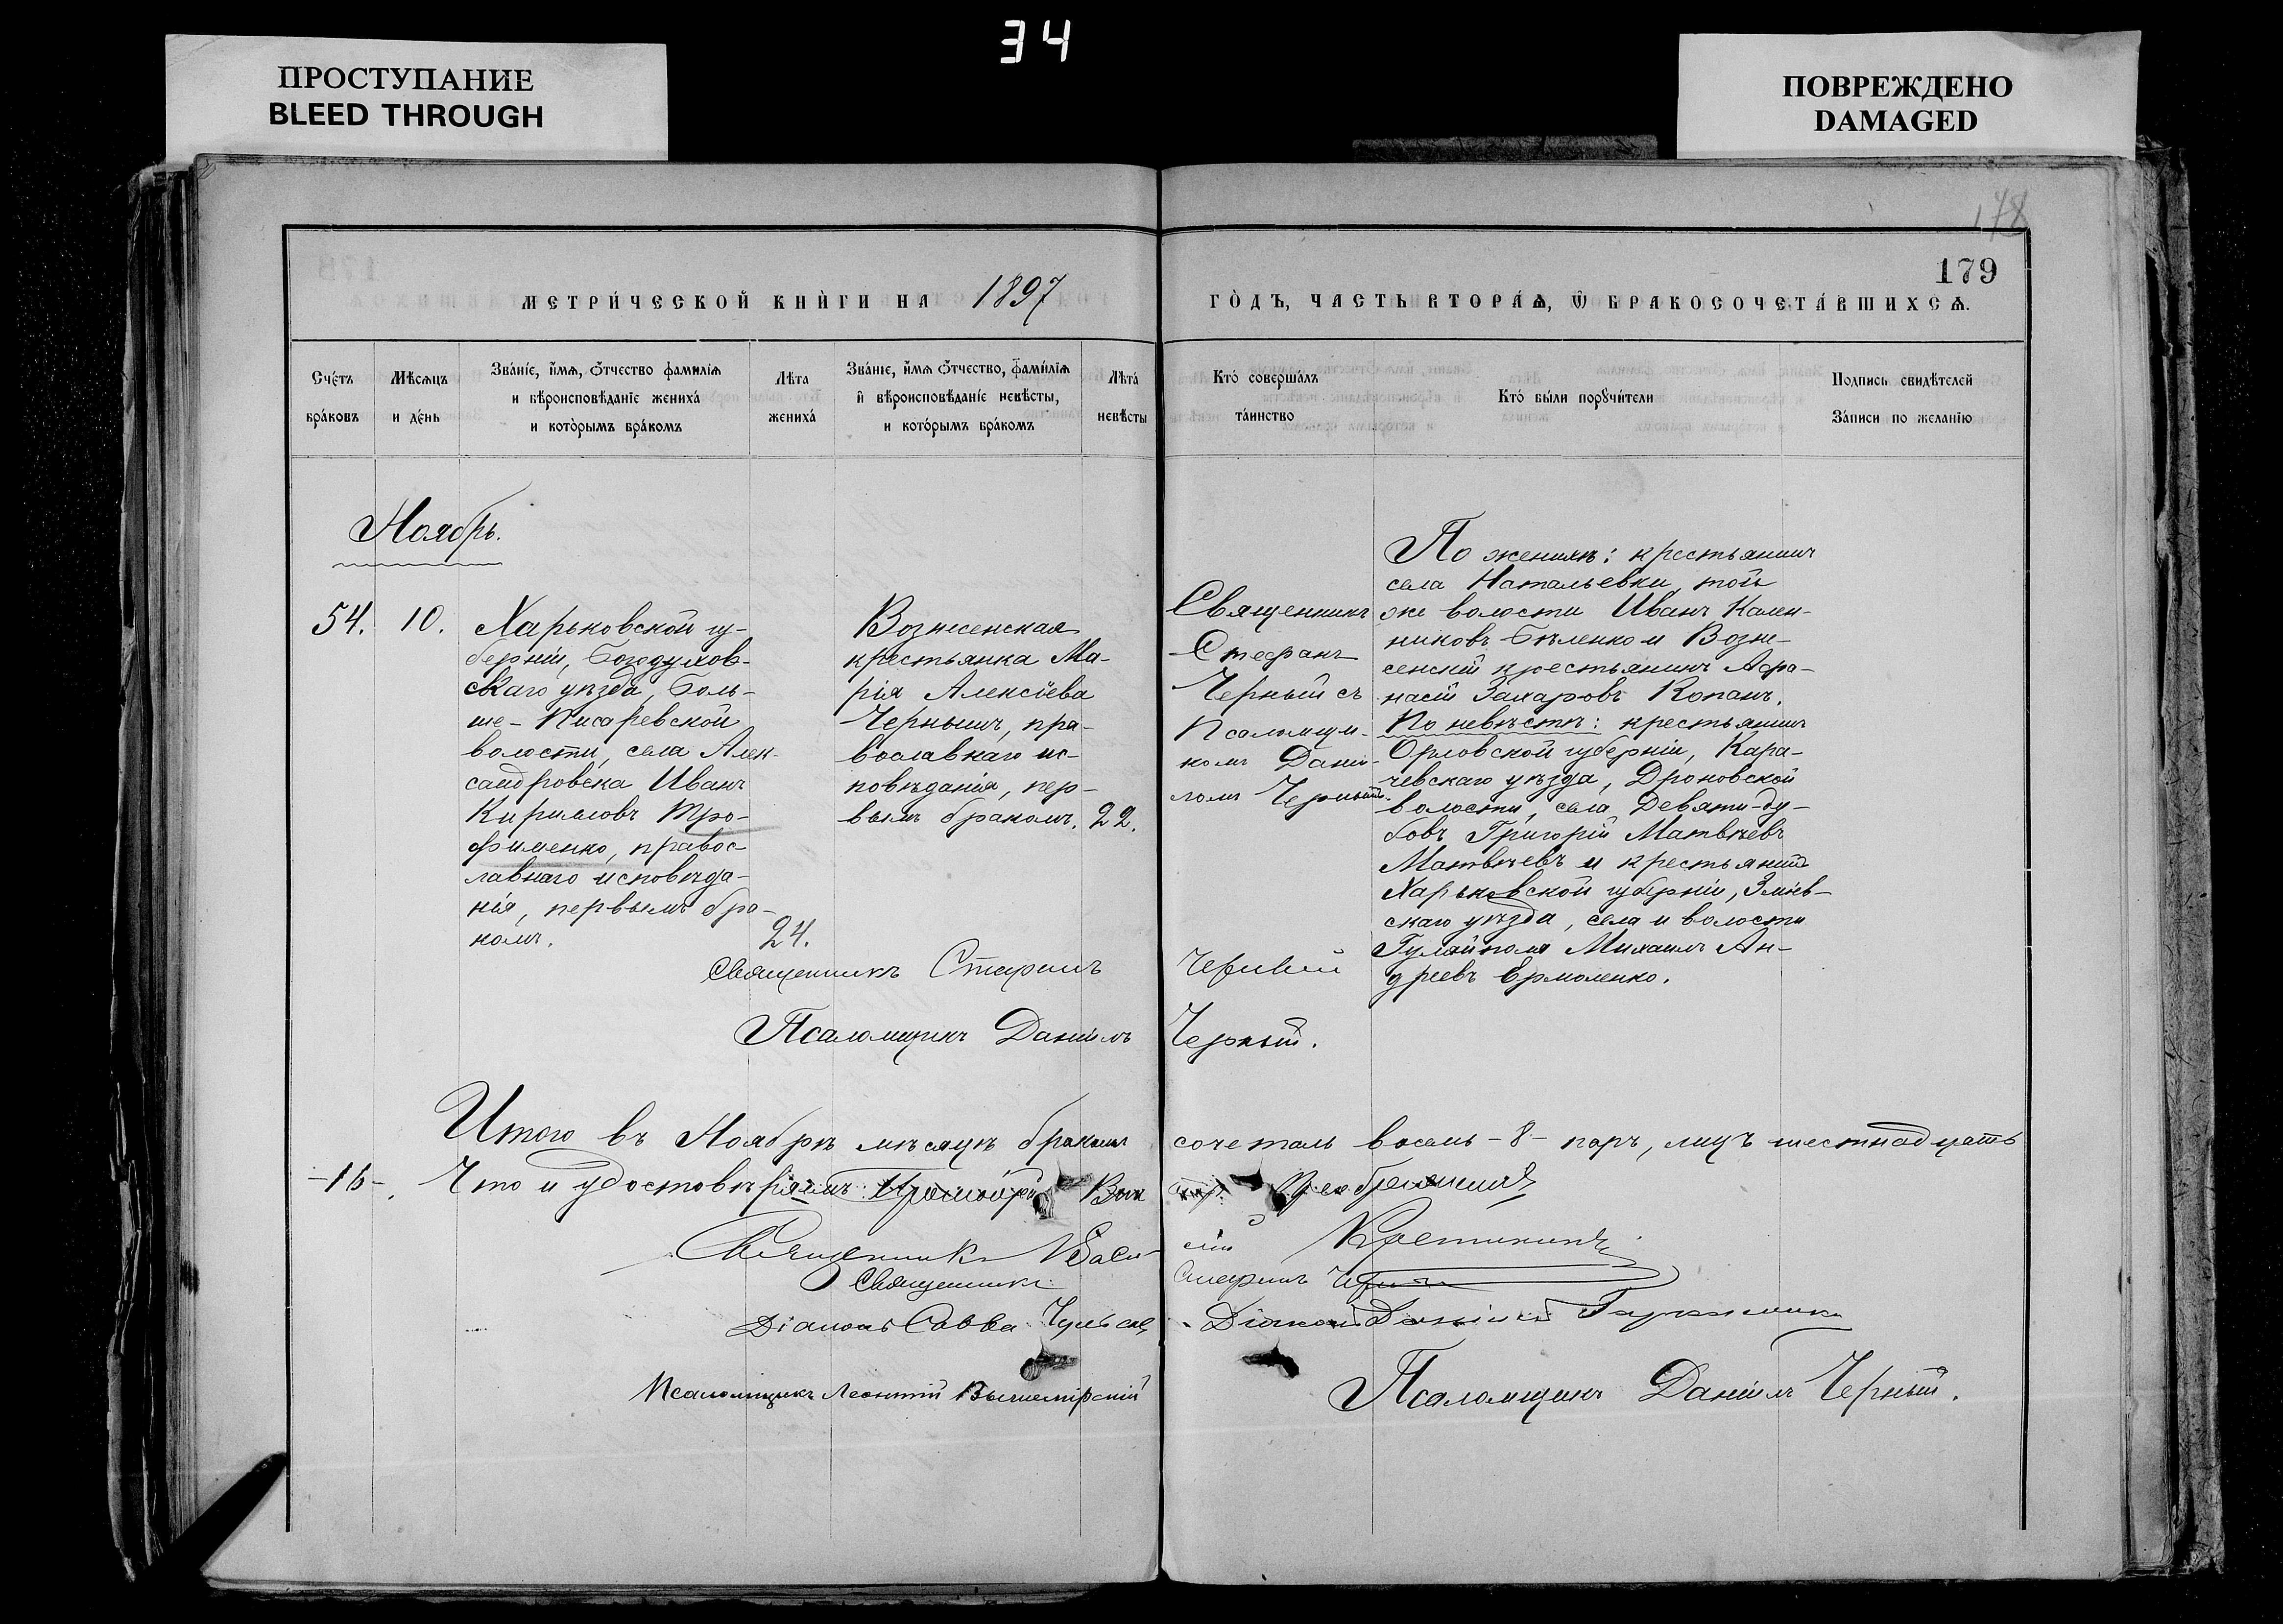 34
ПРОСТУПАНИЕ
BLEED THROUGH
ПОВРЕЖДЕНО
DAMAGED
178
179
МЕТРИ́ЧЕСКОЙ КНЍГИ НА 1897
ГО̀ДЪ, ЧАСТЬ ВТОРА́Ѧ, Ѿ БРАКОСОЧЕТА́ВШИХСѦ.
Сче́тъ
бра́ковъ
Мѣ́сѧцъ
и де́нь
Зва́нїе, и́мѧ, ѻ́тчество фами́лїѧ
и вѣроисповѣ́данїе жениха́
и кото́рымъ бра́комъ
Лѣ́та
жениха́
Зва́нїе, и́мѧ ѻ́тчество, фами́лїѧ
и҆ вѣроисповѣ́данїе невѣ́сты,
и кото́рымъ бра́комъ
Лѣ́та
невѣ́сты
Кто́ соверша́лъ
та́инство
Кто́ бы́ли порꙋчи́тели
Подпись свидѣ́телей
За́писи по жела́нїю
Ноябрь.
54.
10.
Харьковской гу-
берніи, Богодухов-
скаго уѣзда, Боль-
ше-Писаревской
волости, села Алек-
сандровска Иванъ
Кирилловъ Тро-
фименко, правос-
лавнаго исповѣда-
нія, первымъ бра-
комъ.
24.
Вознесенская
крестьянка Ма-
рія Алексѣева
Чернышъ, пра-
вославнаго ис-
повѣданія, пер-
вымъ бракомъ.
22.
Священникъ
Стефанъ
Черный съ
Псаломщи-
комъ Даніи-
ломъ Чернымъ.
По женихѣ: крестьянинъ
села Натальевки, той
же волости Иванъ Кален-
никовъ Бѣленко и Возне-
сенскій крестьянинъ Афа-
насій Захаровъ Копанъ.
По невѣстѣ: крестьянинъ
Орловской губерніи, Кара-
чевскаго уѣзда, Дроновской
волости, села Девяти-ду-
бовъ Григорій Матвѣевъ
Матвѣевъ и крестьянинъ
Харьковской губерніи, Зміев-
скаго уѣзда, села и волости
Гуляйполя Михаилъ Ан-
дреевъ Ермоленко.
Священникъ Стефанъ Черный
Псаломщикъ Даніилъ Черный.
Итого въ Ноябрѣ мѣсяцѣ бракомъ сочеталъ восемь -8- паръ, лицъ шестнадцать
-16-. Что и удостовѣряемъ:
Священникъ Васи-лій
Священникъ Стефанъ Черный
Діаконъ Савва
Діаконъ
Псаломщикъ Леонтій
Псаломщикъ Даніилъ Черный.